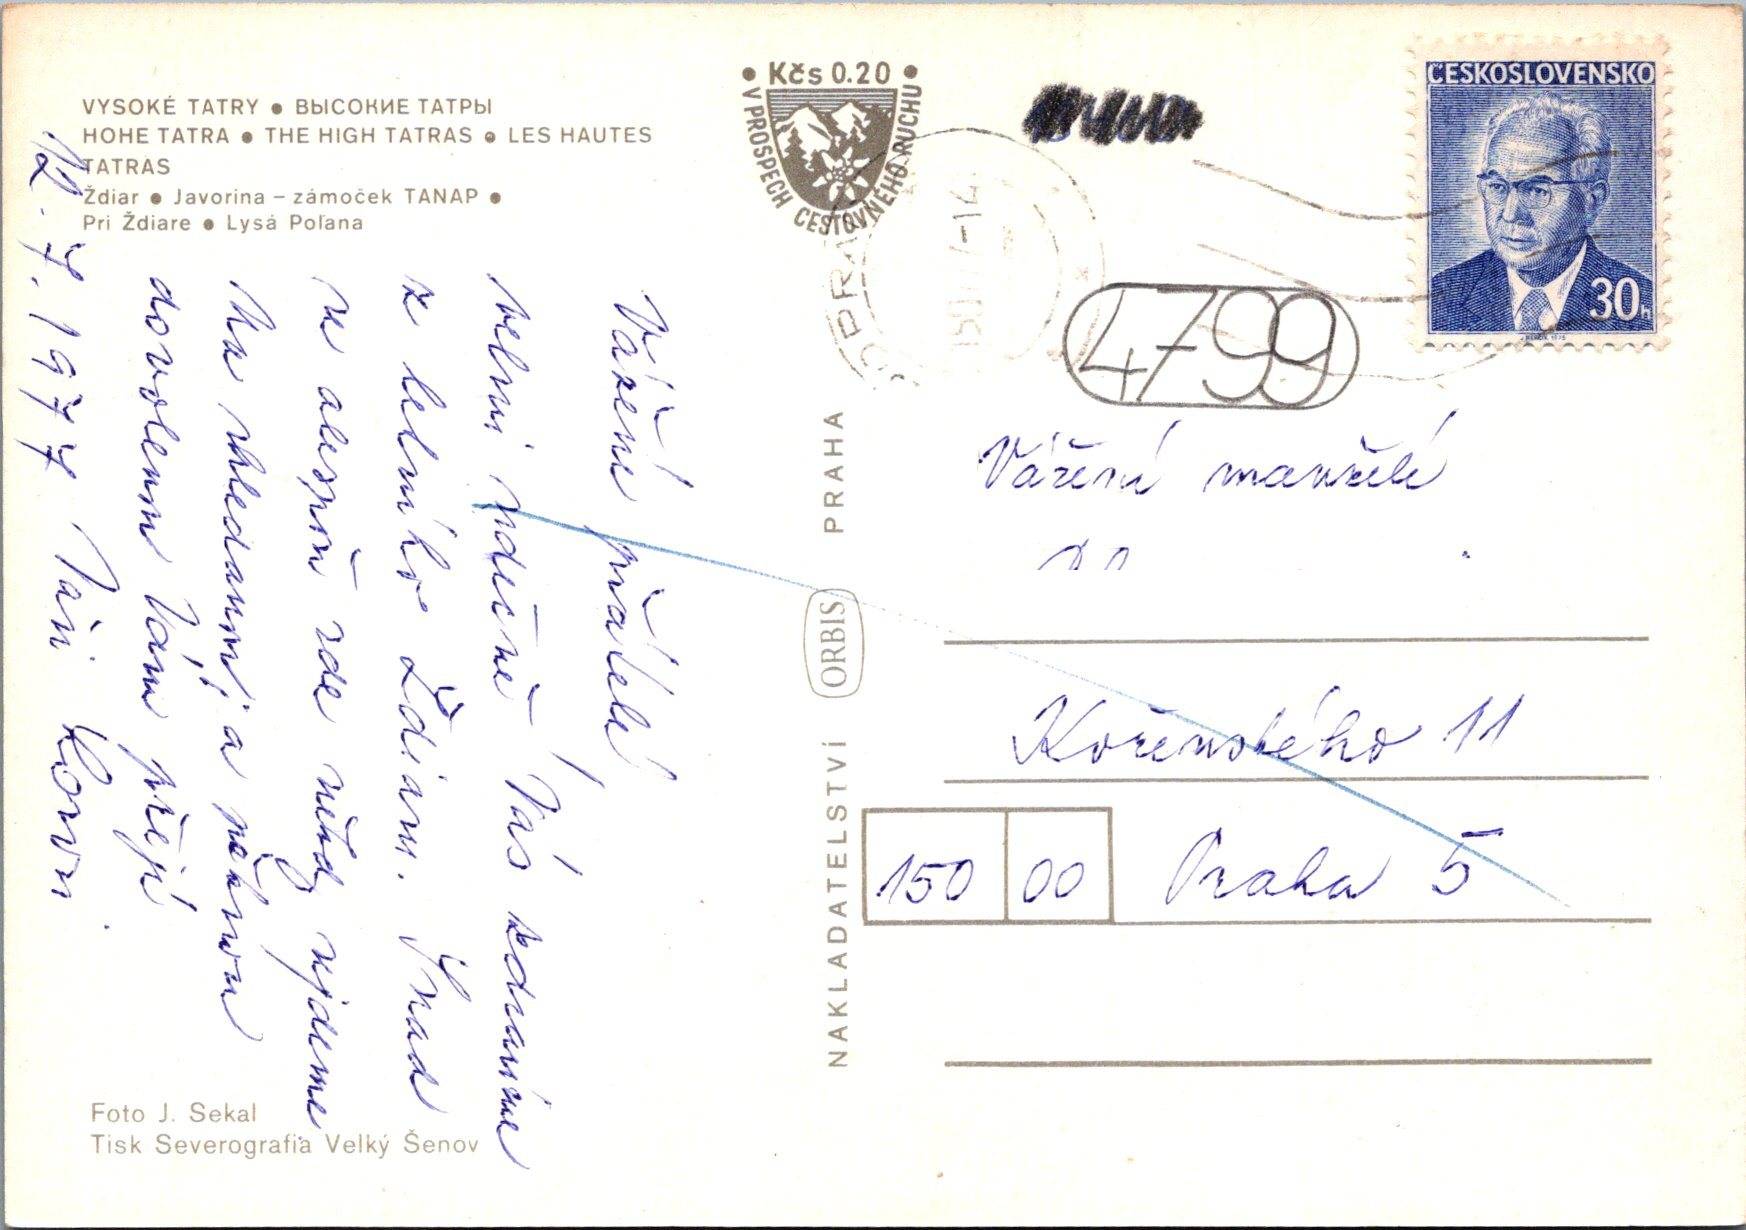 VYSOKÉ TATRY • ВЫСОКИЕ ТАТРЫ
HOHE TATRA • THE HIGH TATRAS • LES HAUTES
TATRAS
Ždiar • Javorina – zámoček TANAP •
Pri Ždiare • Lysá Poľana
• Kčs 0.20 •
V PROSPECH CESTOVNÉHO RUCHU
ČESKOSLOVENSKO
30h
4799
Vážení přátelé
velmi srdečně Vás zdravíme
z letního Ždiaru. Snad
se alespoň zde někdy sejdeme
Na shledanou a pěknou
dovolenou Vám přejí
12. 7. 1977 Vaši
Vážení manželé
Kořenského 11
150 00 Praha 5
NAKLADATELSTVÍ ORBIS PRAHA
Foto J. Sekal
Tisk Severografia Velký Šenov